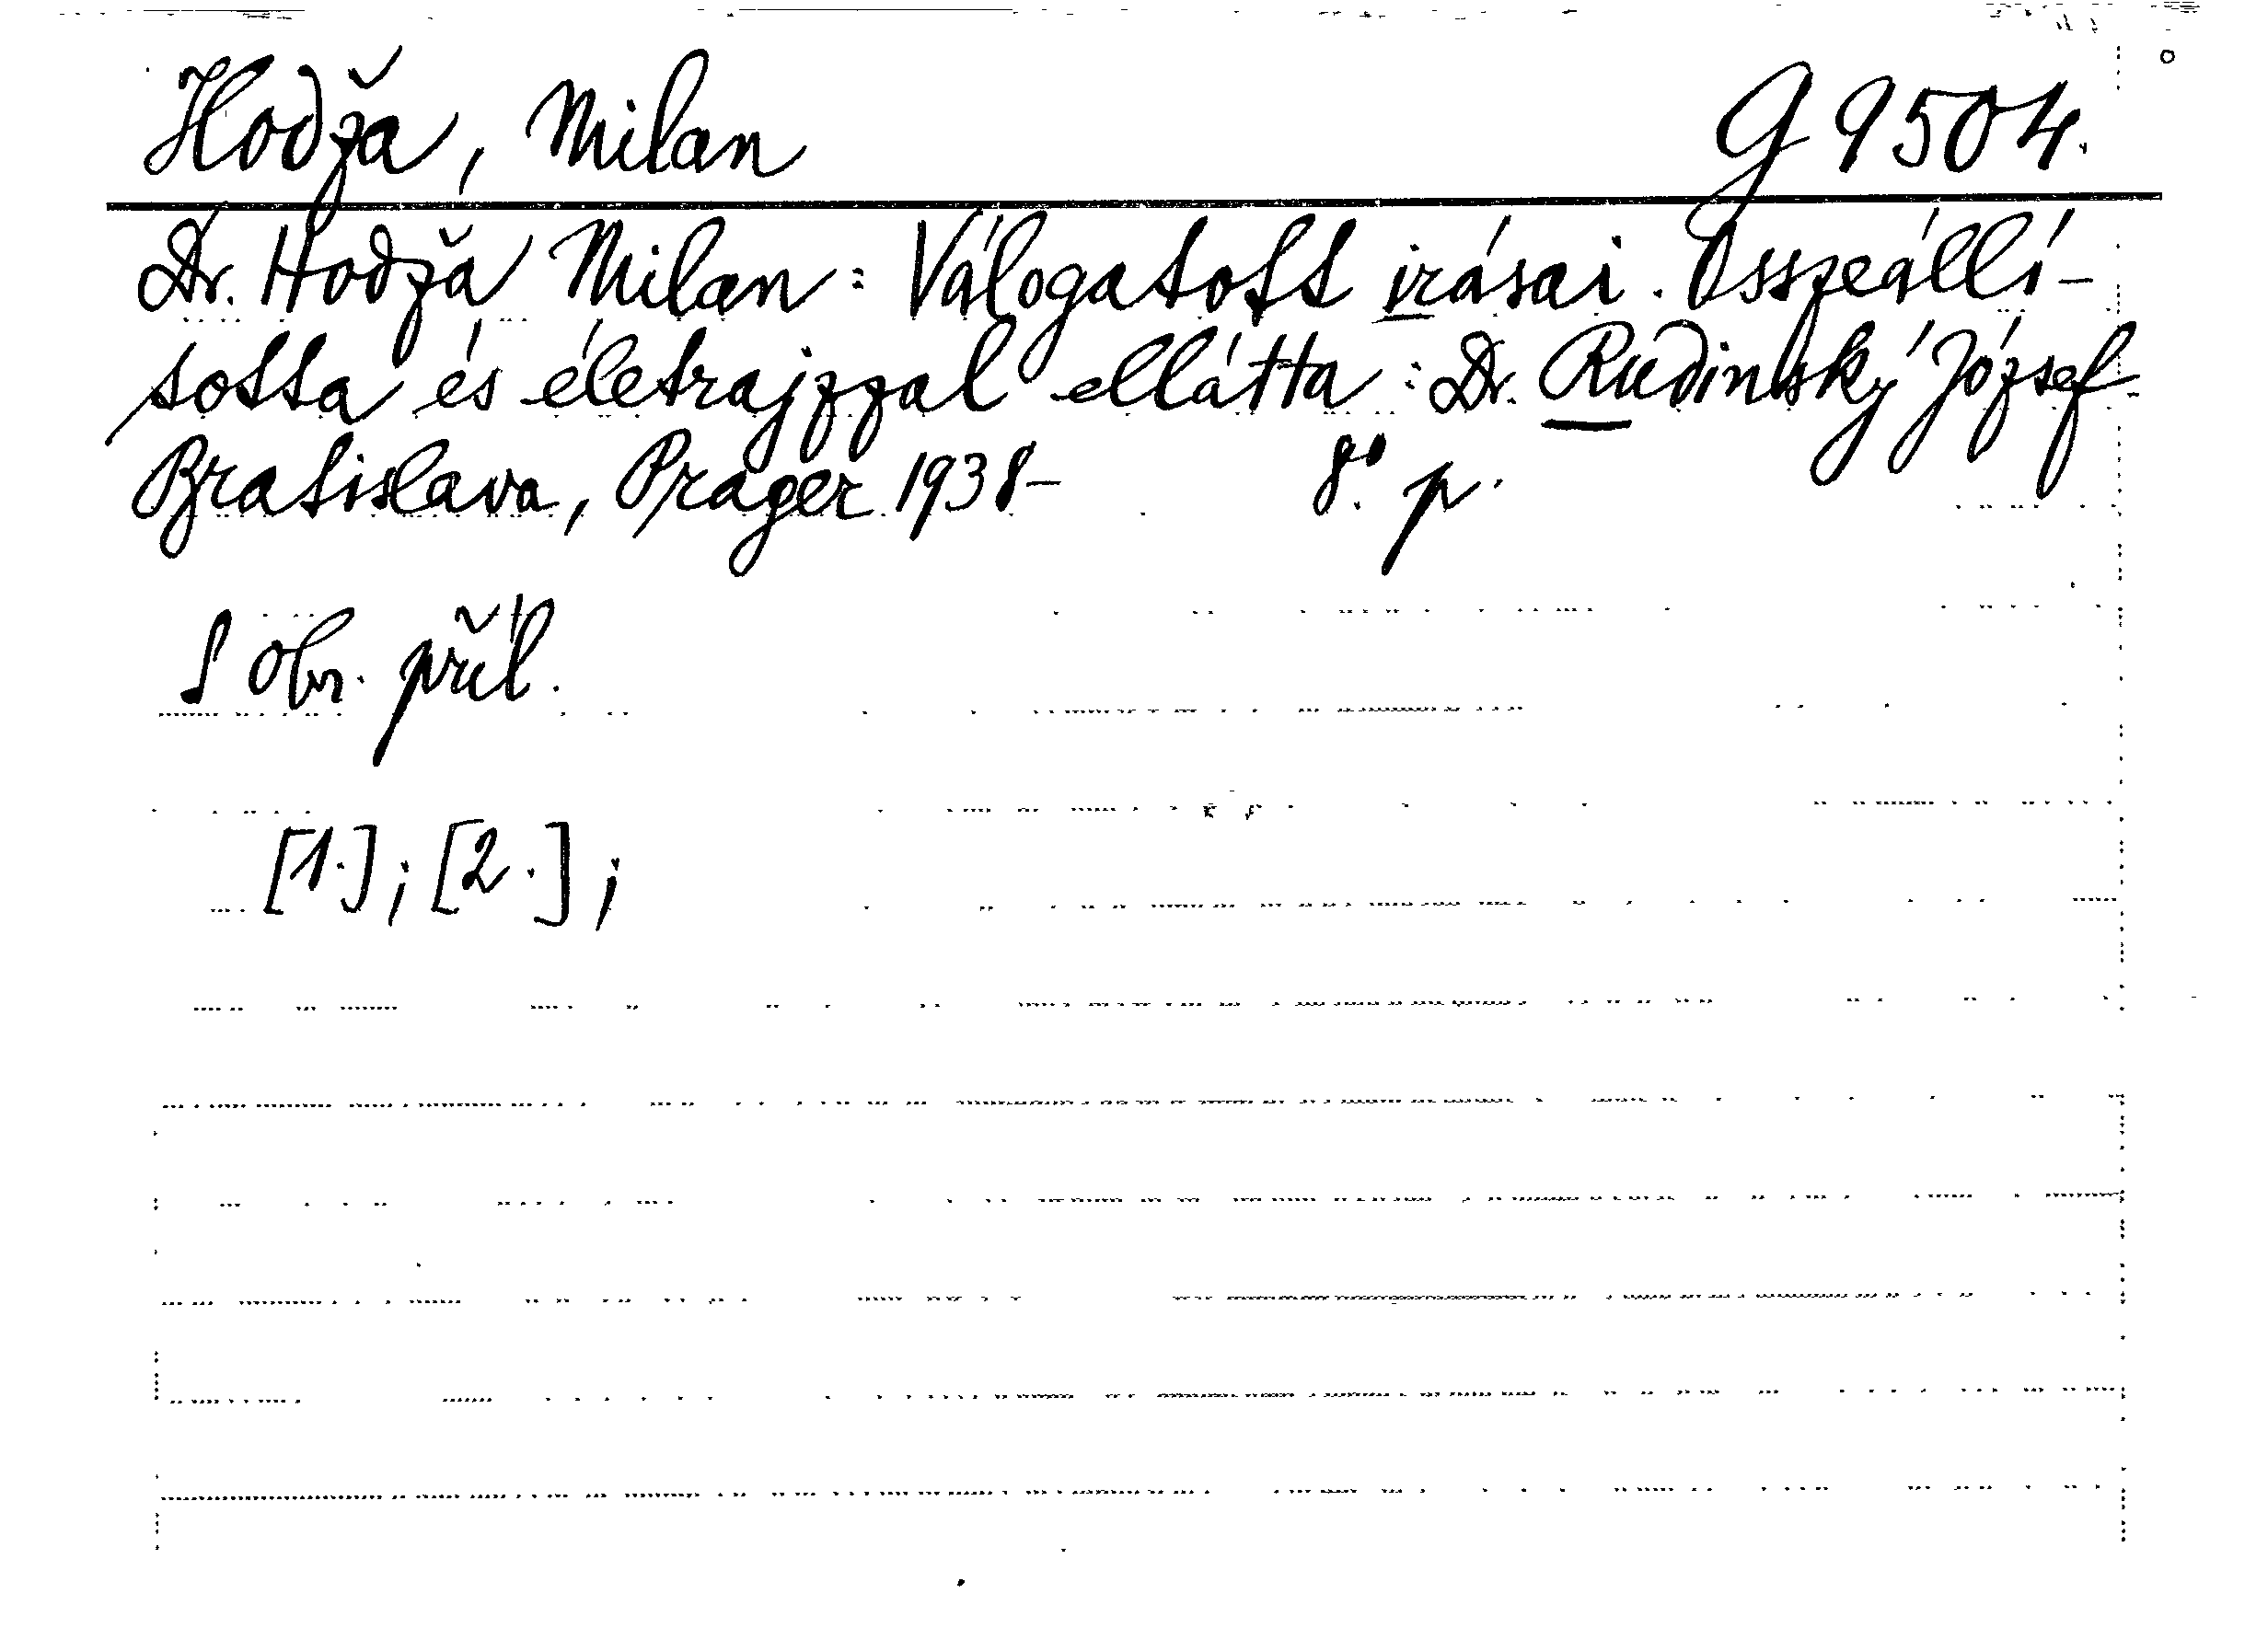 Hodža, Milan G 9504.
Dr. Hodža Milan: Válogatott irásai. Összeállí-
totta és életrajzzal ellátta: Dr. Rudinský József
Bratislava, Prager 1938- 8° p.
S obr. příl.
[1.]; [2.];